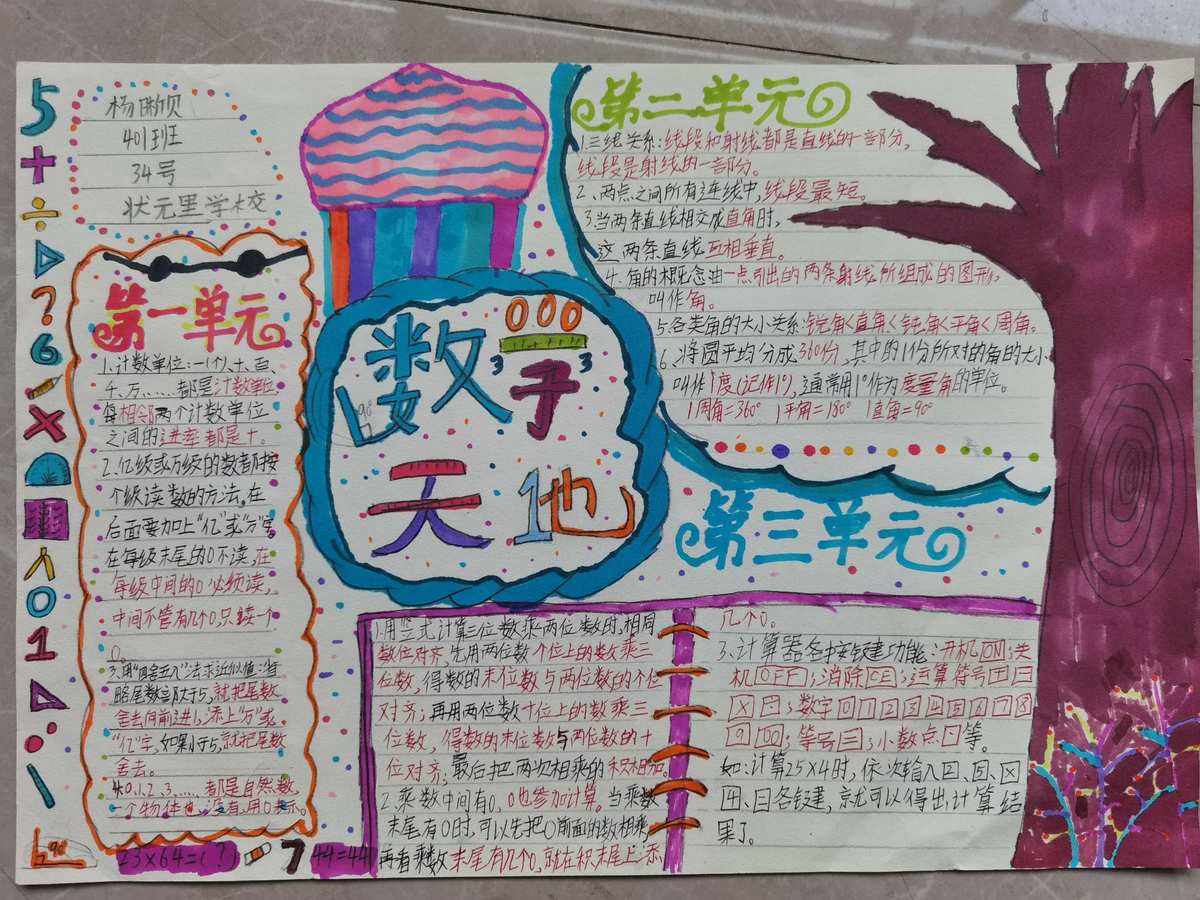 杨
401班
34号
状元里学校
第一单元
1.计数单位:一(个)、十、百、
千、万……都是计数单位
每相邻两个计数单位
之间的进率都是十。
2.亿级或万级的数都按
个级读数的方法,在
后面要加上“亿”或“万”字。
在每级末尾的0不读,在
每级中间的0必须读,
中间不管有几个0,只读一个
0。
3.用“四舍五入”法求近似值:省
略尾数部大于5,就把尾数
舍去向前进1,添上“万”或
“亿”字,如果小于5,就把尾数
舍去。
4.0、1、2、3……都是自然数,
一个物体也没有,用0表示。
数字
天地
90°
第二单元
1.三线关系:线段和射线都是直线的一部分,
线段是射线的一部分。
2、两点之间所有连线中,线段最短。
3.当两条直线相交成直角时,
这两条直线互相垂直。
4.角的概念由一点引出的两条射线所组成的图形,
叫作角。
5.各类角的大小关系:锐角<直角<钝角<平角<周角。
6、将圆平均分成360份,其中的1份所对的角的大小
叫作1度(记作1°),通常用1°作为度量角的单位。
1周角=360° 1平角=180° 1直角=90°
第三单元
1.用竖式计算三位数乘两位数时,相同
数位对齐,先用两位数个位上的数乘三
位数,得数的末位数与两位数的个位
对齐;再用两位数十位上的数乘三
位数,得数的末位数与两位数的十
位对齐;最后把两次相乘的积相加。
2.乘数中间有0,0也参加计算。当乘数
末尾有0时,可以先把0前面的数相乘,
再看乘数末尾有几个0,就在积末尾上添
几个0。
3、计算器各中按键功能:开机ON;关
机OFF;消除CE;运算符号+-
×÷;数字0 1 2 3 4 5 6 7 8
9 00;等号=;小数点·等。
如:计算25×4时,依次输入2、5、×
4、=各键,就可以得出计算结
果了。
5
+
÷
?
6
×
0
1
90°
23×64=(?)
7
44=44